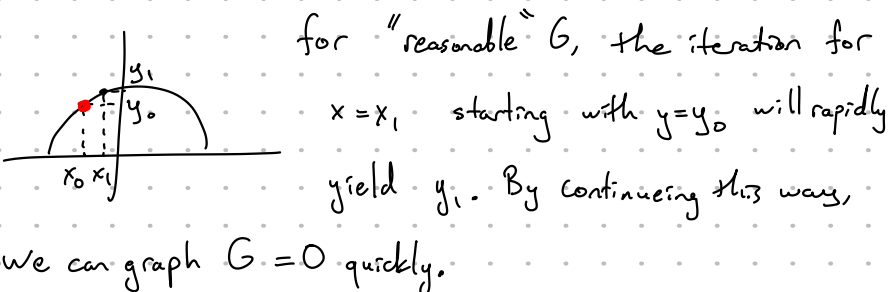 for "reasonable" G, the iteration for
y₁
y₀
x = x₁ starting with y=y₀ will rapidly
x₀ x₁
yield y₁. By continueing this way,
we can graph G = 0 quickly.